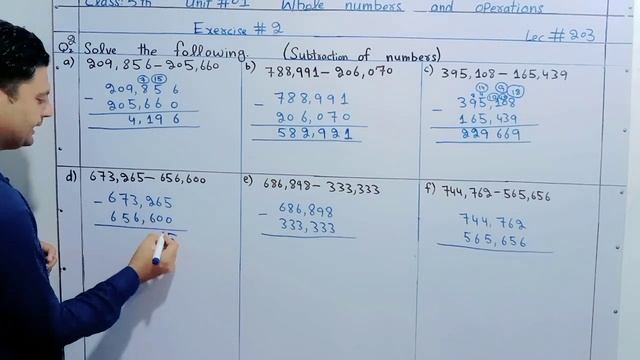 Class: 5th Unit # 01 Whole numbers and operations
Exercise # 2 Lec # 203
Q2 Solve the following. (Subtraction of numbers)
a) 209,856 - 205,660
7 15
209,856
- 205,660
4,196
b) 788,991 - 206,070
788,991
- 206,070
582,921
c) 395,108 - 165,439
395,108
- 165,439
229669
d) 673,265 - 656,600
- 673,265
656,600
5
e) 686,898 - 333,333
- 686,898
333,333
f) 744,762 - 565,656
744,762
565,656